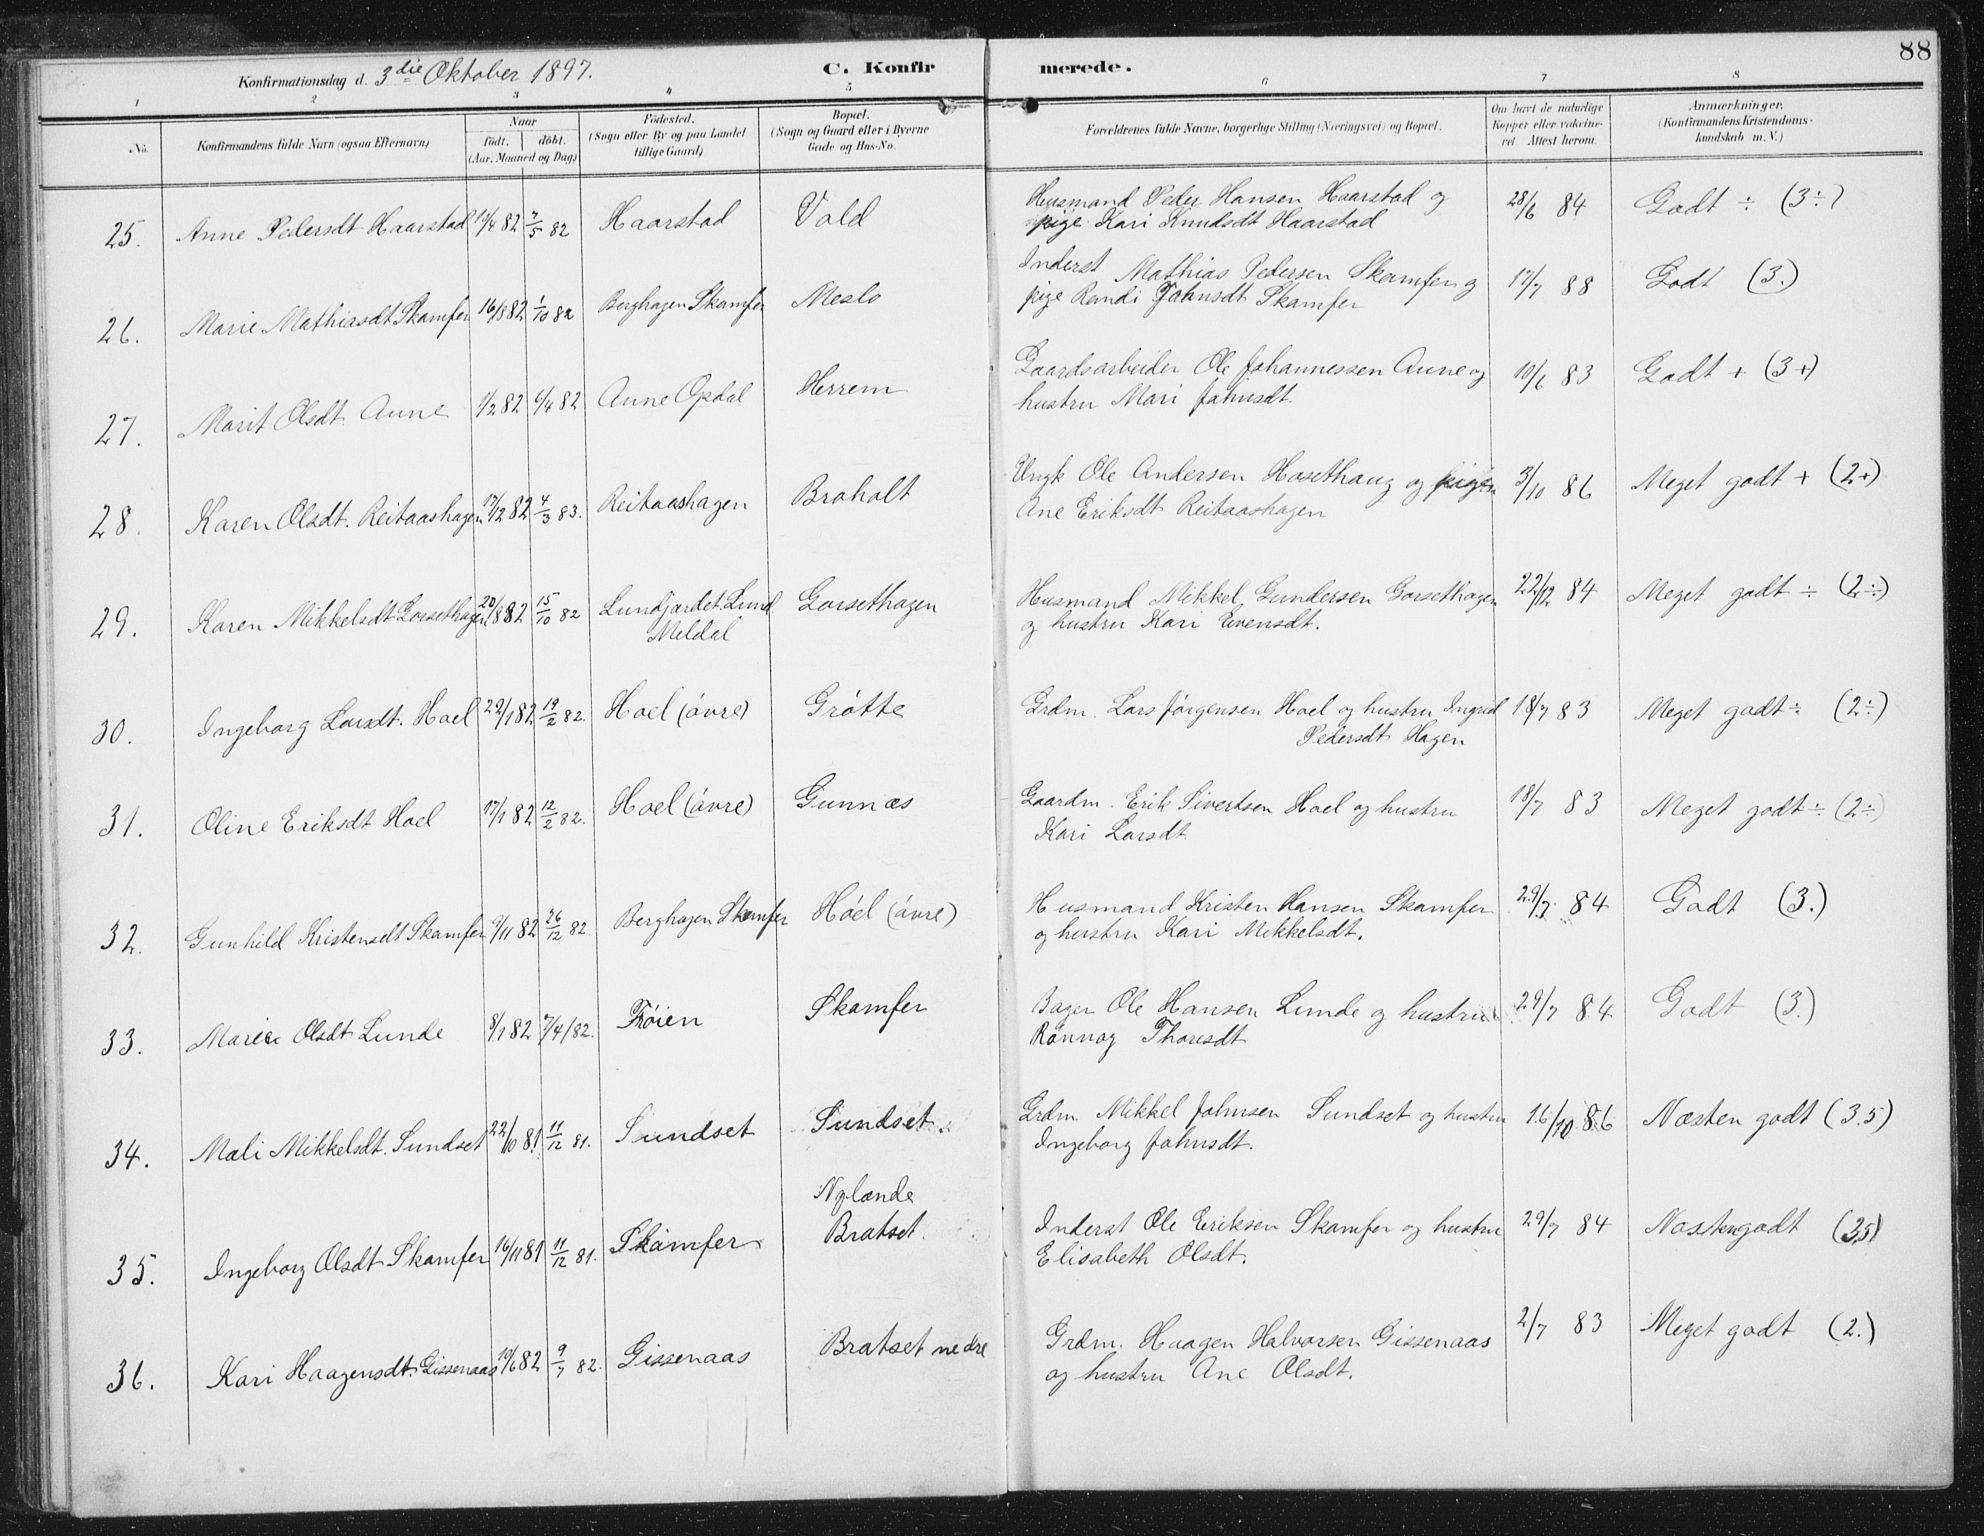 88
Konfirmationsdag d. 3die Oktober 1897. C. Konfir merede.
1 2 3 4 5 6 7 8
No. Konfirmandens fulde Navn (ogsaa Efternavn) Naar født. døbt. (Aar, Maaned og Dag) Fødested. (Sogn eller By og paa Landet tillige Gaard) Bopæl. (Sogn og Gaard eller i Byerne Gade og Hus-No. Forældrenes fulde Navne, borgerlige Stilling (Næringsvei) og Bopæl. Om havt de naturlige Kopper eller vakcineret Attest herom. Anmærkninger. (Konfirmandens Kristendomskundskab m. V.)
25. Anne Pedersdt Haarstad 82 7/5 82 Haarstad Vold Husmand Peder Hansen Haarstad og
pige Kari Knudsdt Haarstad 28/6 84 Godt ÷ (3÷)
26. Marie Mathiasdt Skamfer 16/8 82 1/10 82 Berghagen Skamfer Meslo Inderst Mathias Pedersen Skamfer og
pige Randi Johnsdt Skamfer 17/7 88 Godt (3.)
27. Marit Olsdt. Aune 1/2 82 6/4 82 Aune Opdal Herrem Gaardsarbeider Ole Johannessen Aune og
hustru Mari Johnsdt. 10/6 83 Godt + (3+)
28. Karen Olsdt. Reitaashagen 17/12 82 4/3 83. Reitaashagen Braholt Ungk Ole Andersen Hosethaug og pigen
Ane Eriksdt Reitaashagen 3/10 86 Meget godt + (2+)
29. Karen Mikkelsdt Gorsethagen 20/8 82 15/10 82 Lundjardet Lund
Meldal Gorsethagen Husmand Mikkel Gundersen Gorsethagen
og hustru Kari Evensdt. 22/12 84 Meget godt ÷ (2÷)
30. Ingeborg Larsdt. Hoel 22/1 82 19/2 82. Hoel (óvre) Grótte Grdm. Lars Jörgensen Hoel og hustru Ingrid
Pedersdt Hagen 18/7 83 Meget godt ÷ (2÷)
31. Oline Eriksdt Hoel 17/1 82 12/2 82. Hoel (óvre) Gunnæs Gaardm. Erik Sivertsen Hoel og hustru
Kari Larsdt 18/7 83 Meget godt ÷ (2÷)
32. Gunhild Kristensdt Skamfer 9/11 82 26/12 82. Berghagen Skamfer Hóel (óvre) Husmand Kristen Hansen Skamfer
og hustru Kari Mikkelsdt. 29/7 84 Godt (3.)
33. Marie Olsdt Lunde 8/1 82 7/4/82. Fróien Skamfer Bager Ole Hansen Lunde og hustru
Rønnog Thoresdt 29/7 84 Godt (3.)
34. Mali Mikkelsdt. Sundset 22/10 81 11/12 81. Sundset Sundset Grdm. Mikkel Johnsen Sundset og hustru
Ingeborg Johnsdt. 16/10 86 Næsten godt (3.5)
35. Ingeborg Olsdt Skamfer 16/11 81 11/12 81. Skamfer Nylænde
Bratset Inderst Ole Eriksen Skamfer og hustru
Elisabeth Olsdt. 29/7 84 Næstengodt (3,5)
36. Kari Haagensdt. Gissenaas 19/6 82 9/7 82. Gissenaas Bratset nedre Grdm. Haagen Halvorsen Gissenaas
og hustru Ane Olsdt. 2/7 83 Meget godt (2.)